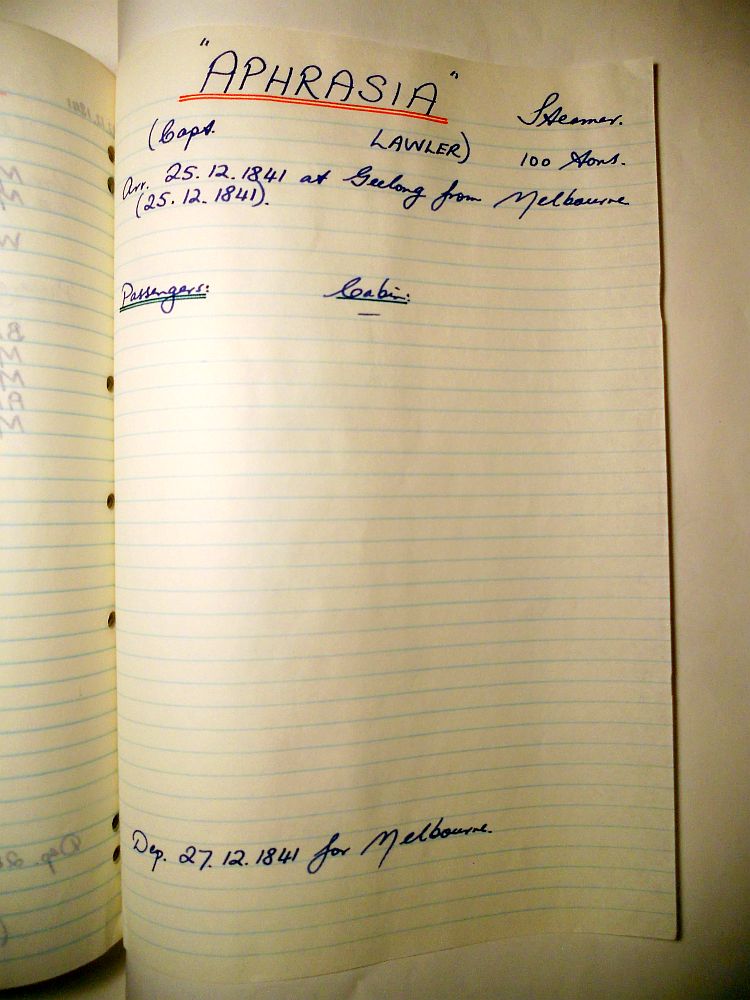 "APHRASIA"
Steamer.
(Capt. LAWLER) 100 tons.
Arr. 25.12.1841 at Geelong from Melbourne
(25.12.1841).
Passengers: Cabin:
—
Dep. 27.12.1841 for Melbourne.